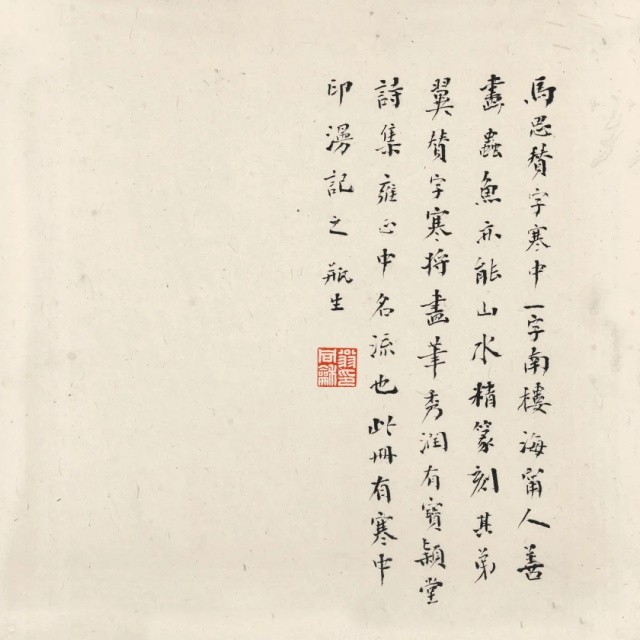 馬思贊字寒中一字南樓海甯人善
畫蟲魚亦能山水精篆刻其弟
翼贊字寒將畫筆秀潤有寶穎堂
詩集雍正中名流也此冊有寒中
印漫記之 瓶生
翁同龢印